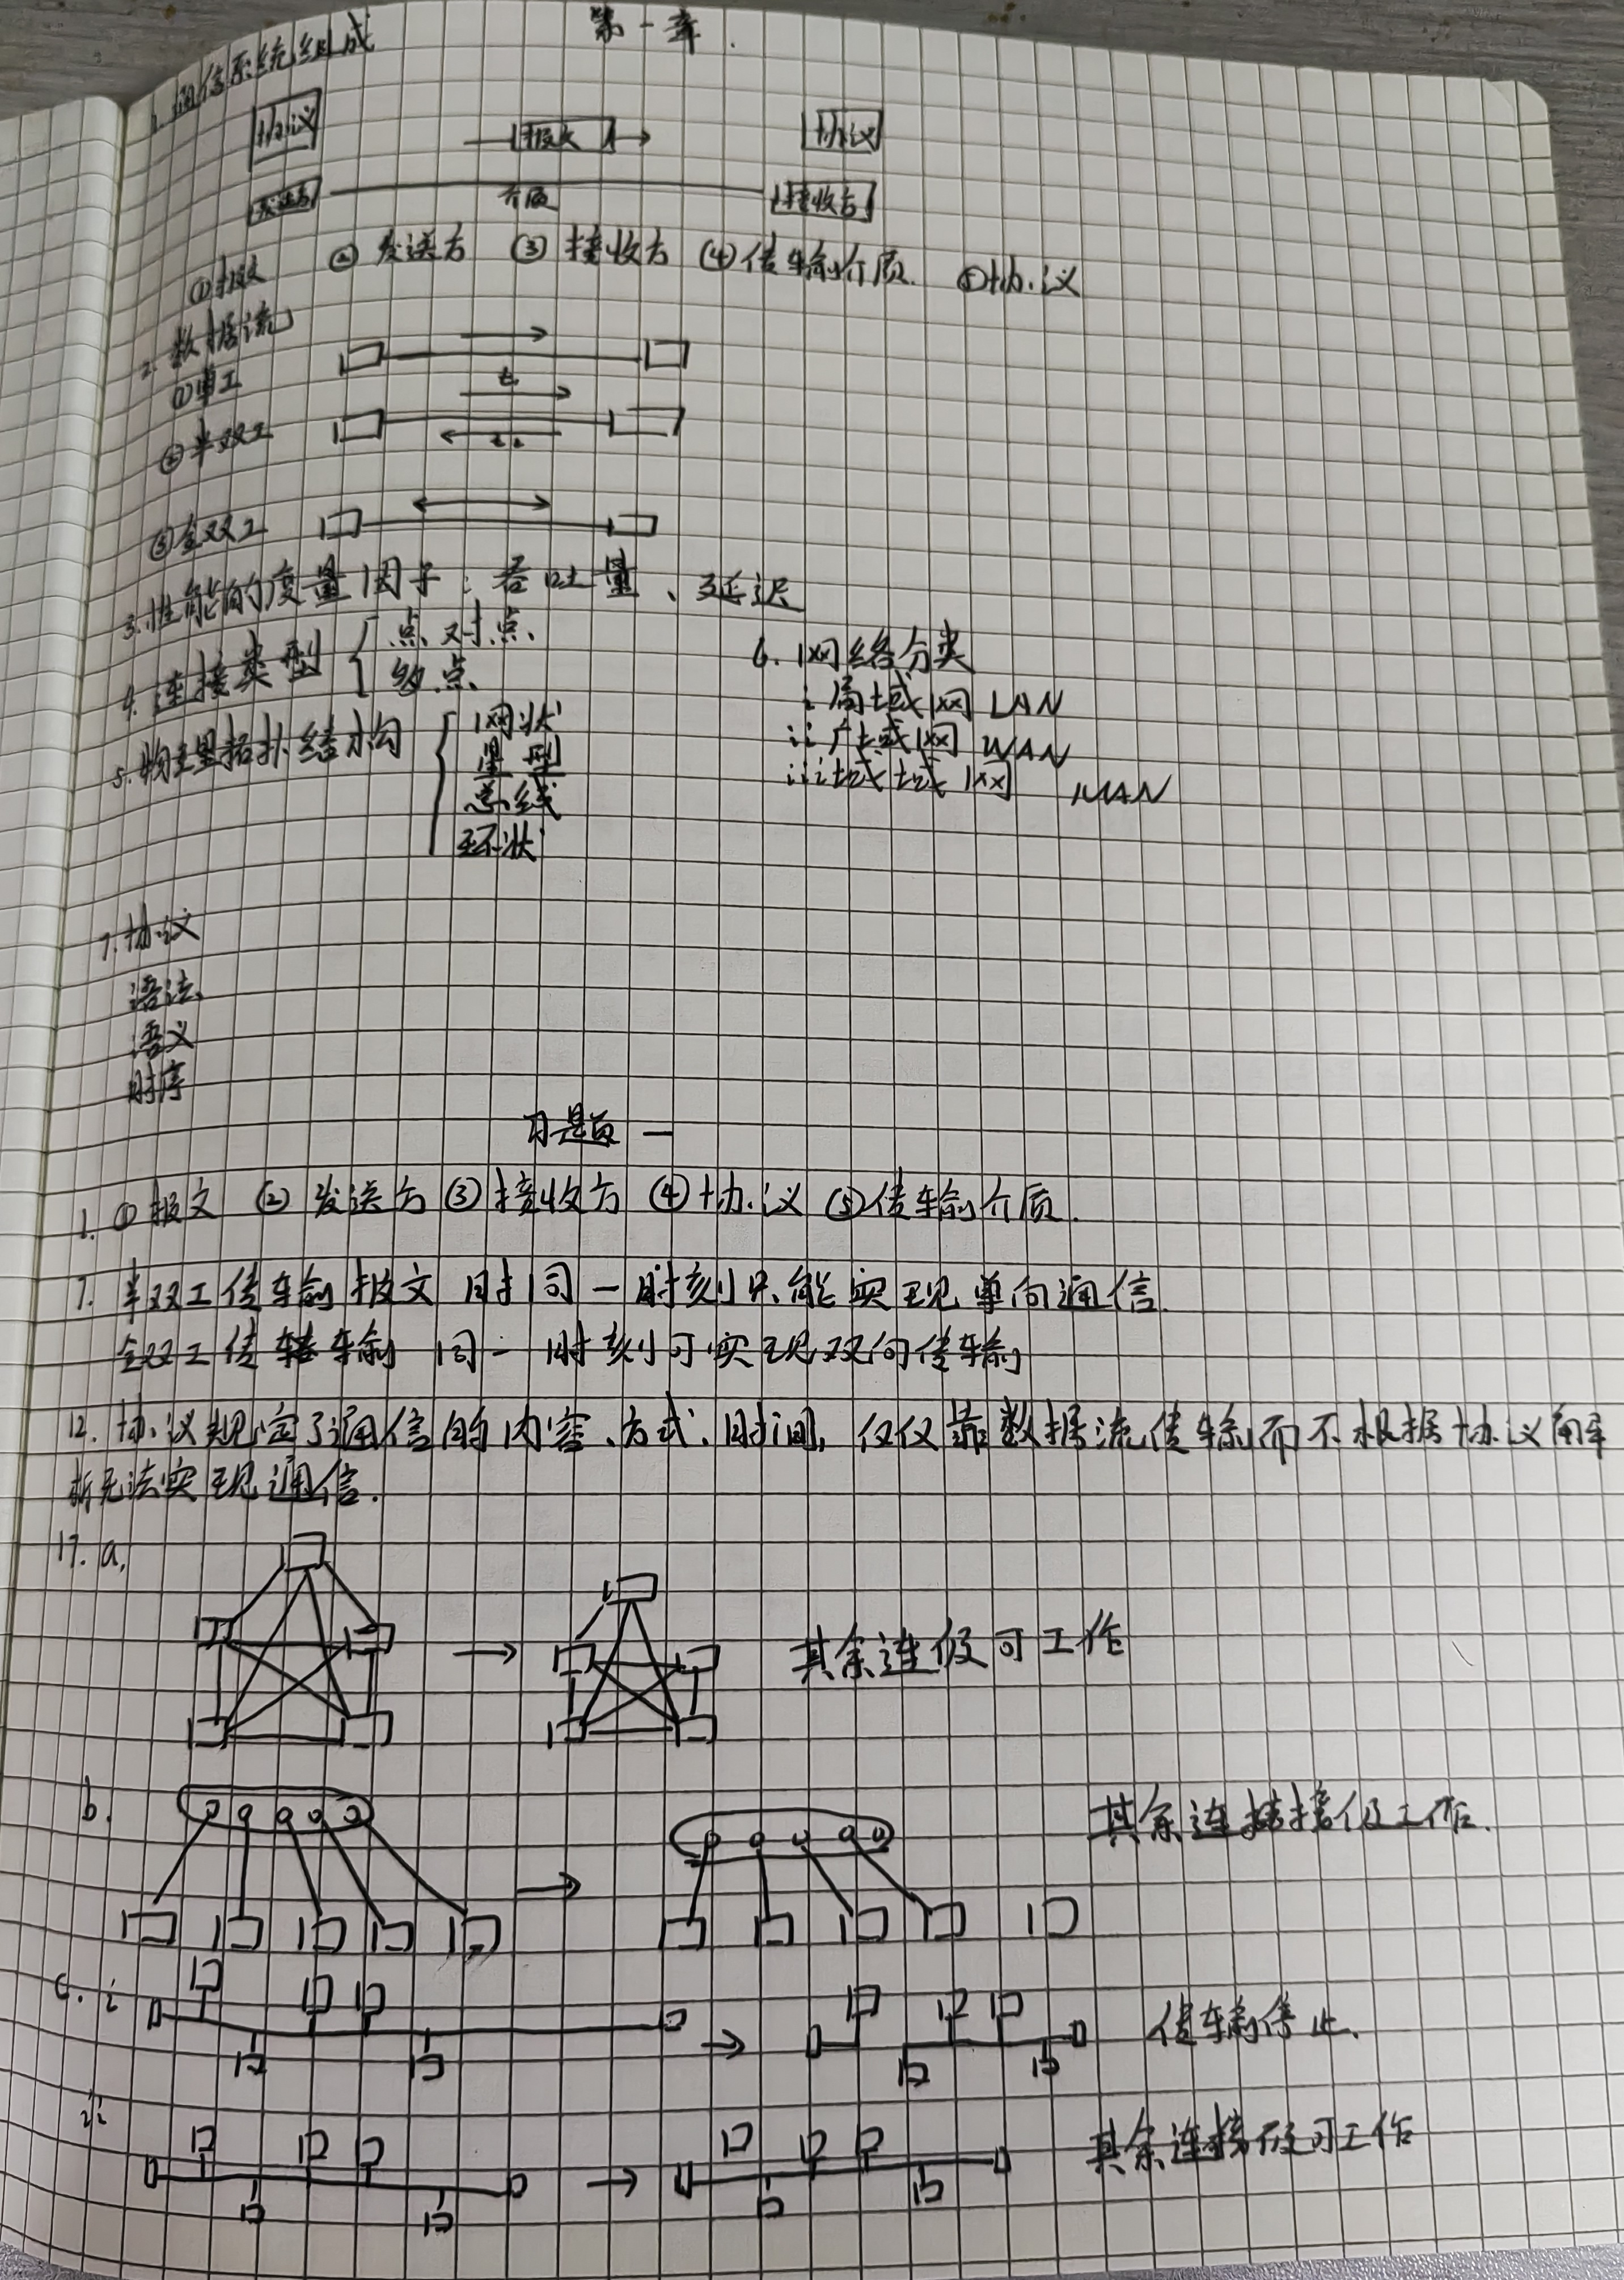 第一章.
1. 通信系统组成
协议 报文 协议
发送方 介质 接收方
①报文 ②发送方 ③接收方 ④传输介质. ⑤协议
2. 数据流
①单工
②半双工 t₁ t₂
③全双工
3.性能的度量因子:吞吐量、延迟
4. 连接类型 点对点、
多点
5.物理拓扑结构 网状
星型
总线
环状
6. 网络分类
i 局域网 LAN
ii 广域网 WAN
iii 城域网 MAN
7. 协议
语法、
语义
时序
习题一
1. ①报文 ②发送方 ③接收方 ④协议 ⑤传输介质.
7. 半双工传输报文时同一时刻只能实现单向通信.
全双工传输 同一时刻可实现双向传输
12. 协议规定了通信的内容、方式、时间, 仅仅靠数据流传输而不根据协议解
析无法实现通信.
17. a.
其余连仍可工作
b.
其余连接仍工作.
c. i
传输停止.
ii
其余连接仍可工作